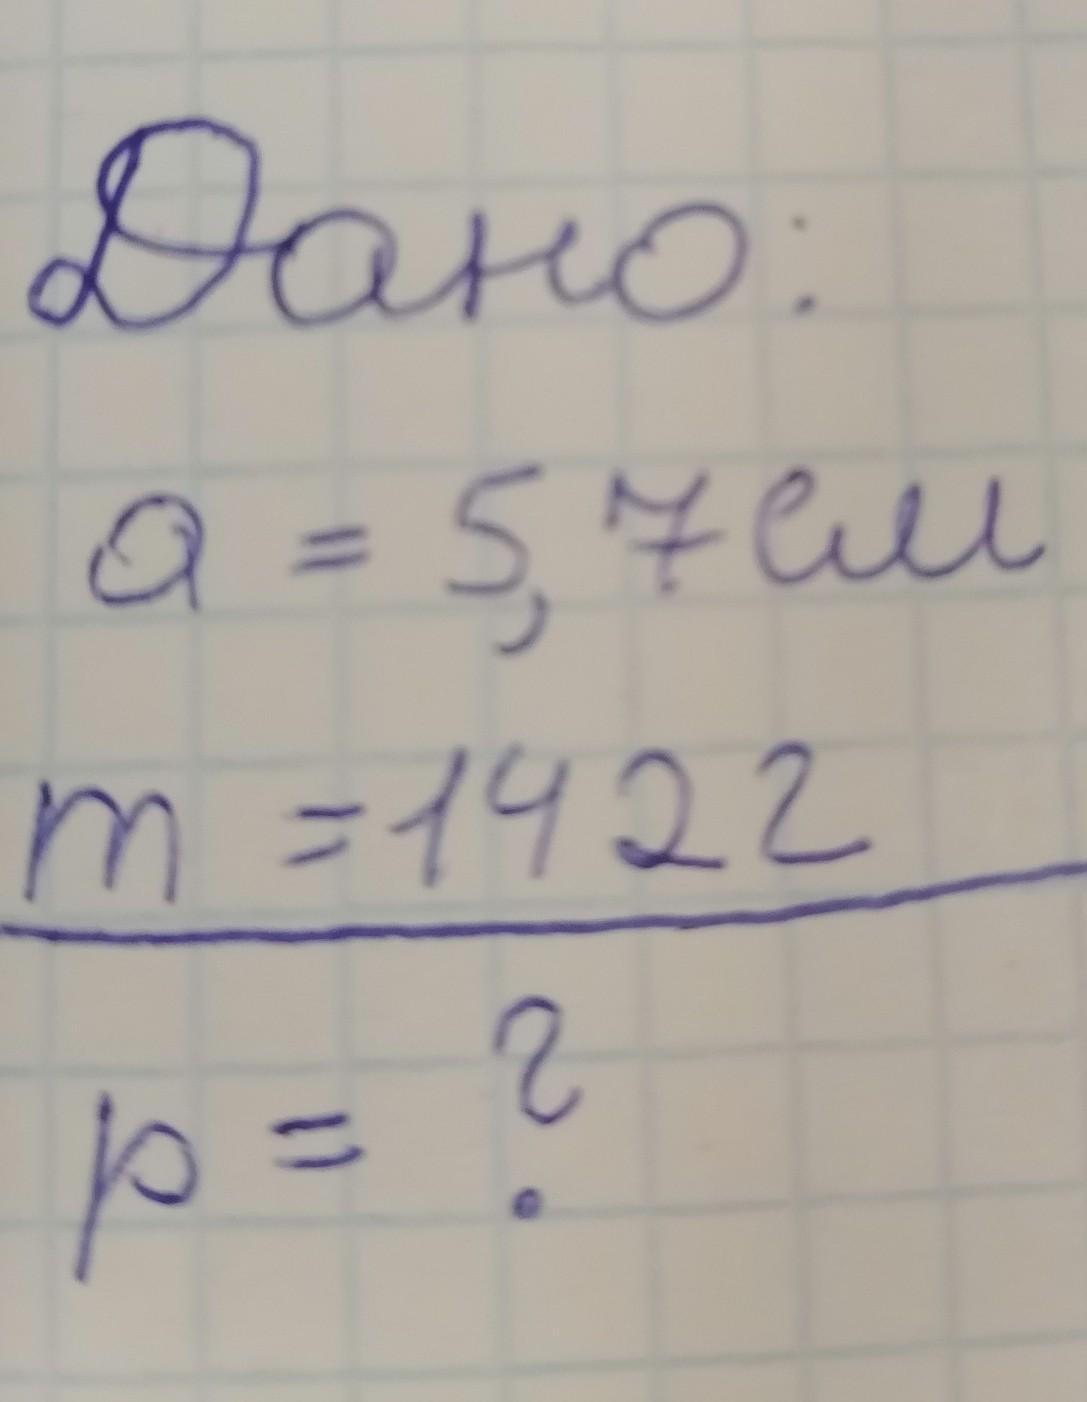 Дано:
a = 5,7 см
m = 142 г
p = ?